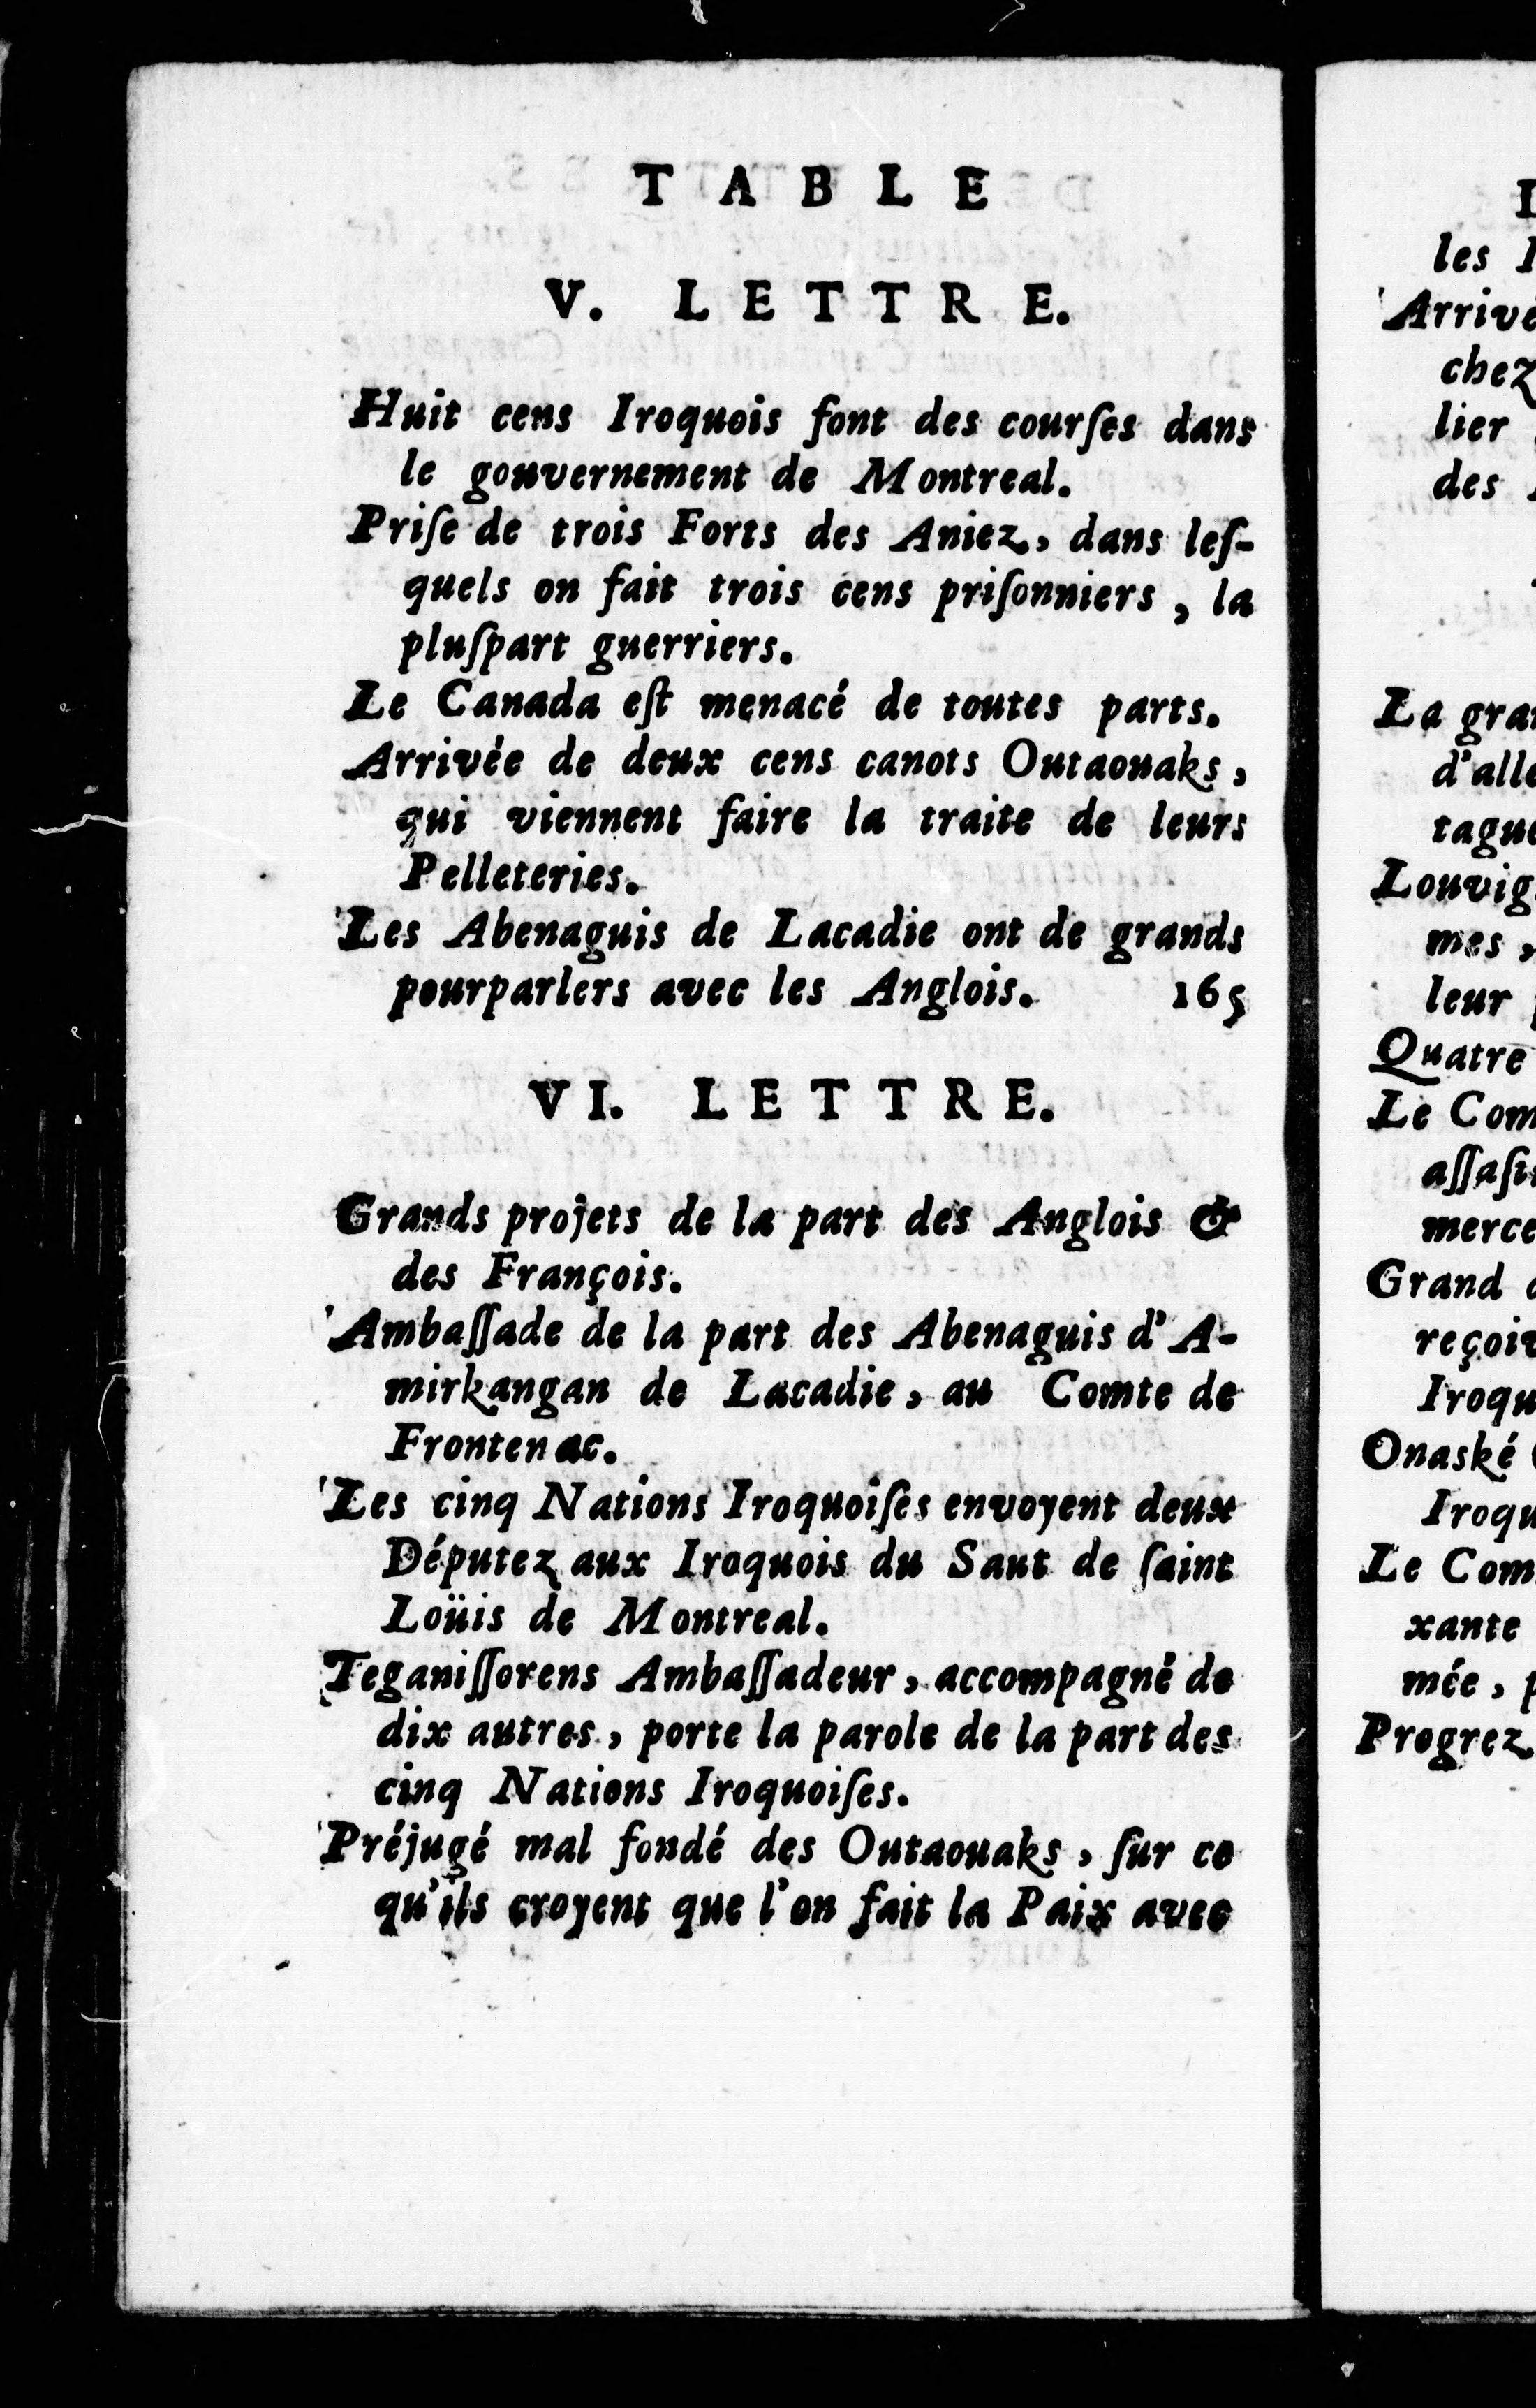 TABLE
V. LETTRE.
Huit cens Iroquois font des courſes dans
le gouvernement de Montreal.
Priſe de trois Forts des Aniez, dans leſ-
quels on fait trois cens priſonniers, la
pluſpart guerriers.
Le Canada eſt menacé de toutes parts.
Arrivée de deux cens canots Outaouaks,
qui viennent faire la traite de leurs
Pelleteries.
Les Abenaguis de Lacadie ont de grands
pourparlers avec les Anglois. 165
VI. LETTRE.
Grands projets de la part des Anglois &
des François.
Ambaſſade de la part des Abenaguis d'A-
mirkangan de Lacadie, au Comte de
Frontenac.
Les cinq Nations Iroquoiſes envoyent deux
Députez aux Iroquois du Saut de ſaint
Loüis de Montreal.
Teganiſſorens Ambaſſadeur, accompagné de
dix autres, porte la parole de la part des
cinq Nations Iroquoiſes.
Préjugé mal fondé des Outaouaks, ſur ce
qu'ils croyent que l'on fait la Paix avec
les
chez
lier
des
La
leur
Quatre
Le
Grand
Onaské
Le
xante
mée,
Progrez